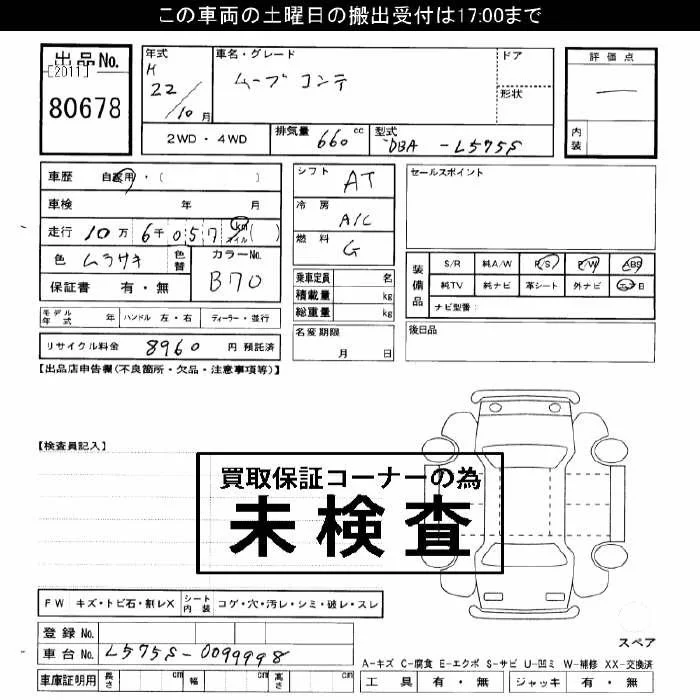 この車両の土曜日の搬出受付は17:00まで
出品No.
[2011]
80678
年式
H
22
/10 月
車名・グレード
ムーブコンテ
ドア
形状
評価点
—
内装
2WD・4WD
排気量 660 cc
型式 DBA - L575S
車歴 自家用・( )
車検 年 月
走行 10万 6千 057 km マイル ( )
色 ムラサキ 色替
カラーNo.
B70
保証書 有・無
シフト AT
冷房 A/C
燃料 G
乗車定員 名
積載量 kg
総重量 kg
セールスポイント
装備品
S/R 純A/W P/S P/W ABS
純TV 純ナビ 革シート 外ナビ エアB
ナビ型番:
モデル年式 年 ハンドル 左・右 ディーラー・並行
名変期限
月 日
後日品
リサイクル料金 8960 円 預託済
【出品店申告欄(不良箇所・欠品・注意事項等)】
【検査員記入】
買取保証コーナーの為
未検査
FW キズ・トビ石・割レX シート内装 コゲ・穴・汚レ・シミ・破レ・スレ
登録No.
車台No. L575S-0099998
車庫証明用 長さ cm 幅 cm 高さ cm
スペア
A-キズ C-腐食 E-エクボ S-サビ U-凹ミ W-補修 XX-交換済
工具 有・無 ジャッキ 有・無